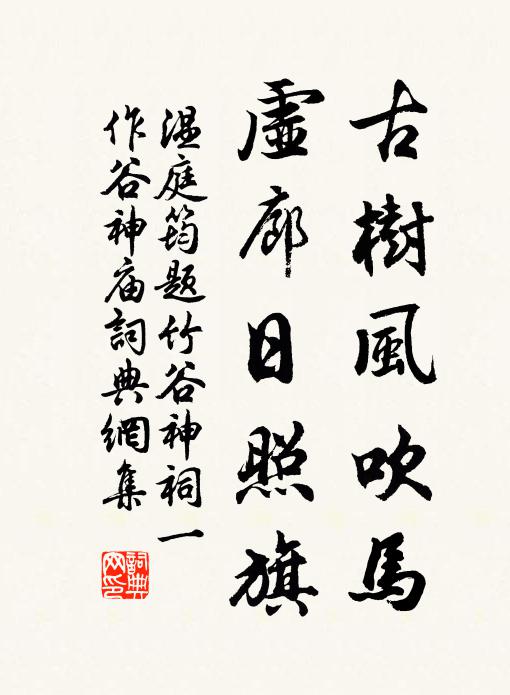 古樹風吹馬
虛廊日照旗
温庭筠題竹谷神祠一
作谷神庙詞典網集
詞典網印